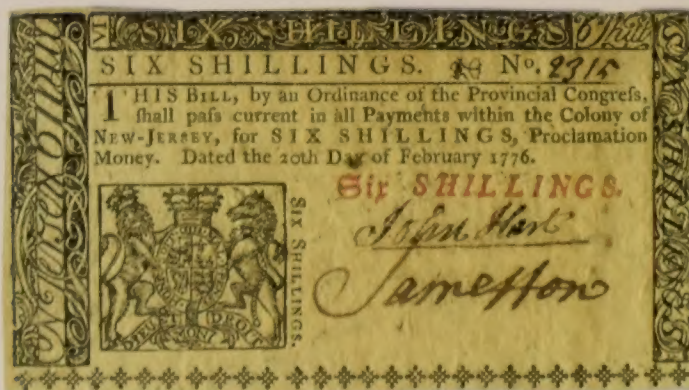 VI SIX SHILLINGS 6 Shill
SIX SHILLINGS. No. 2315
THIS BILL, by an Ordinance of the Provincial Congreſs,
ſhall paſs current in all Payments within the Colony of
NEW-JERSEY, for SIX SHILLINGS, Proclamation
Money. Dated the 20th Day of February 1776.
Six SHILLINGS.
SIX SHILLINGS.
John Hart
DIEU ET MON DROIT
SIX SHILLINGS